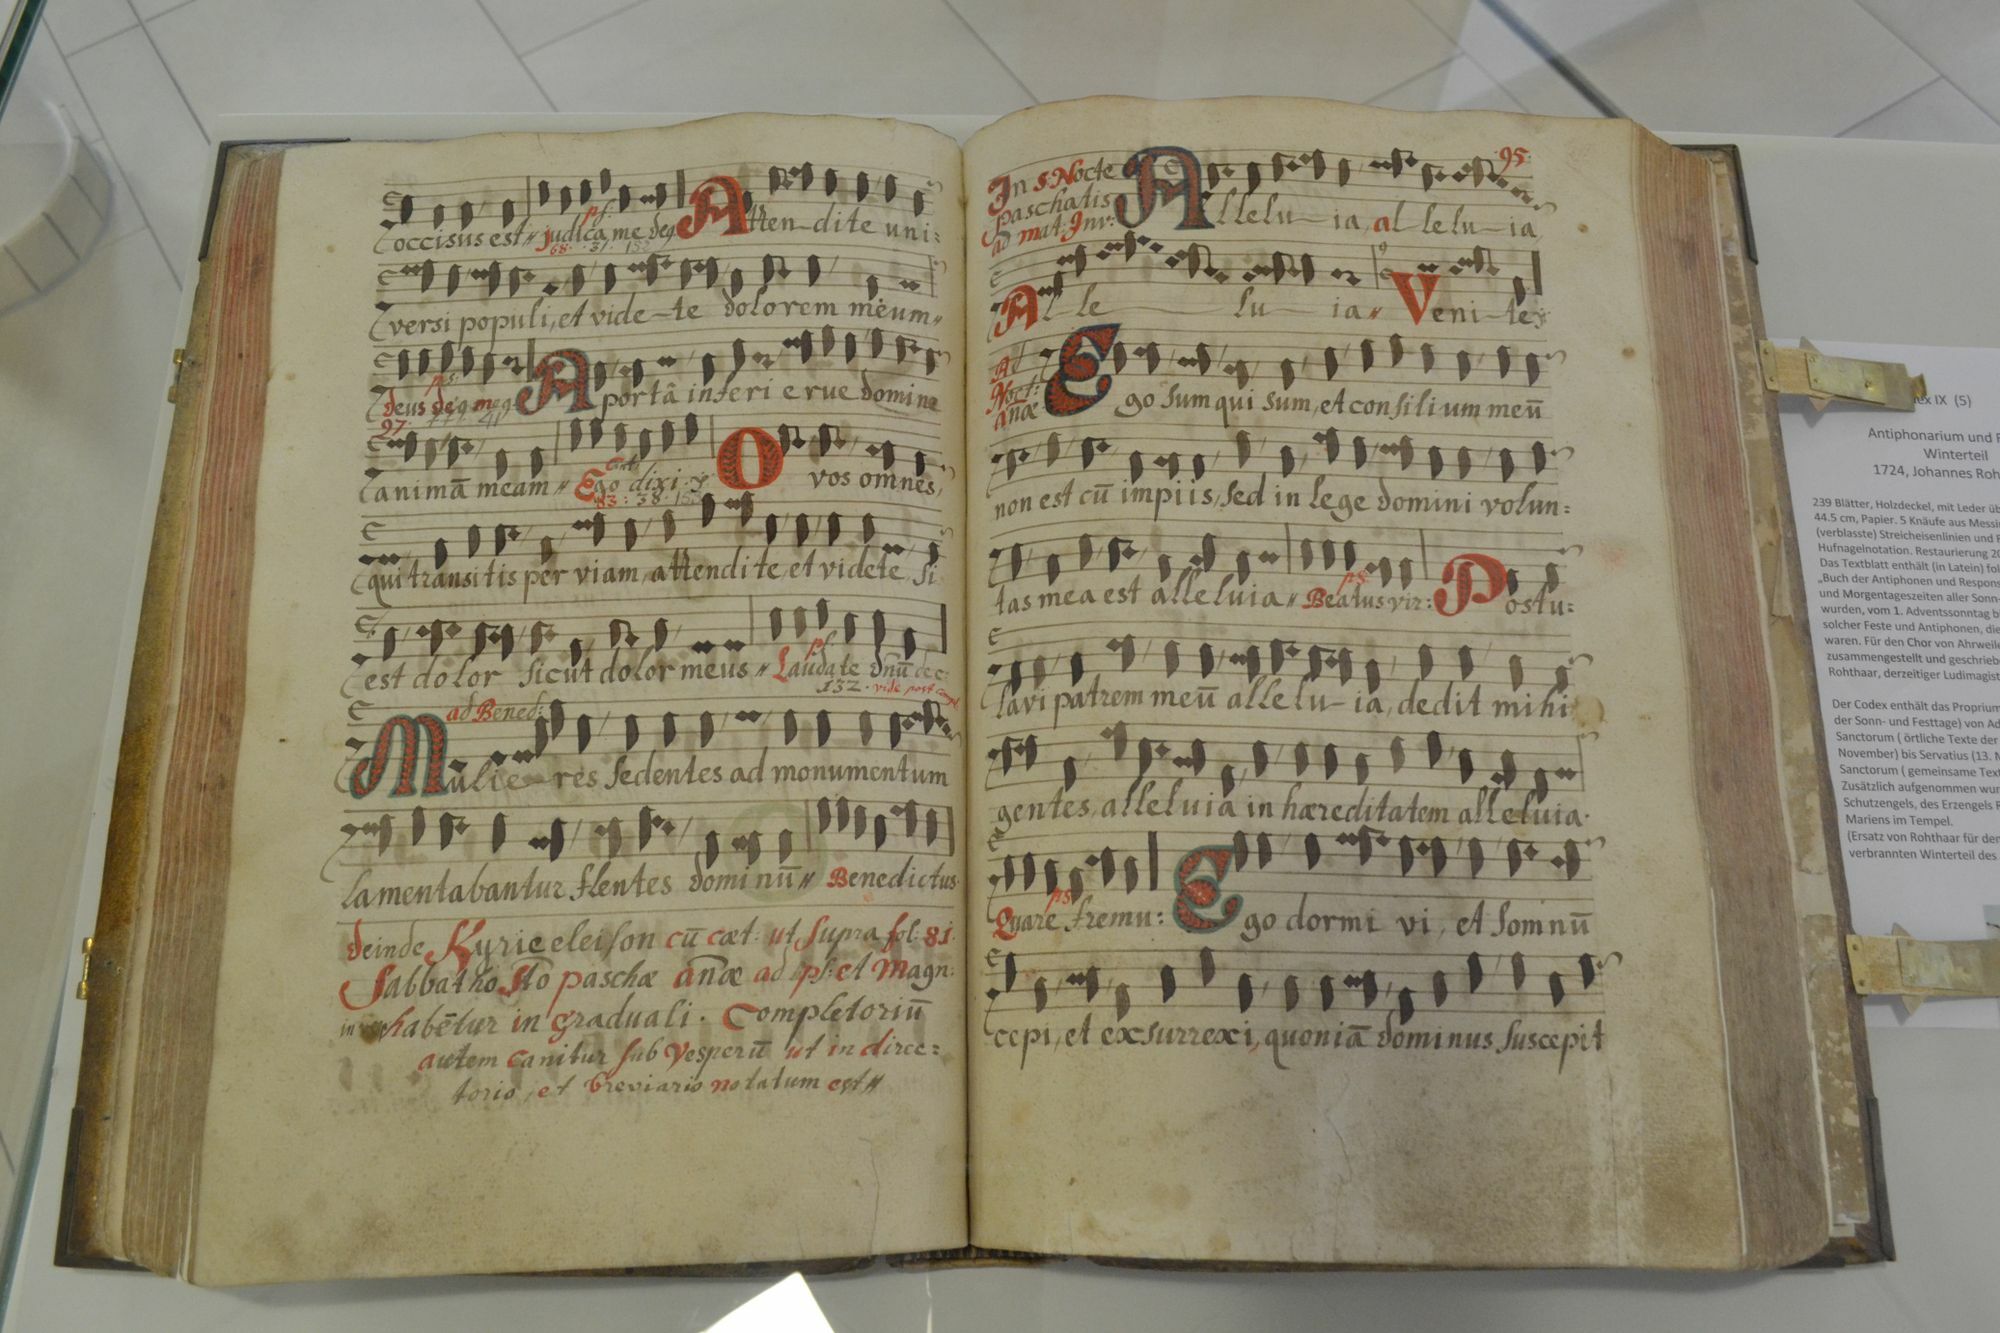 occisus est〃 judica me deq
ps.
68. 31. 152
Atten-dite uni:
versi populi, et vide-te dolorem meum〃
Deus deq meq
ps.
27.
A portâ inferi erue domine
animā meam〃 Ego dixi
83: 38. 152
O vos omnes,
qui transitis per viam, attendite, et videte, si
est dolor sicut dolor meus〃 Laudate dnū de c:
ps.
132. vide post
ad Bened:
Mulie-res sedentes ad monumentum
lamentabantur flentes dominū〃 Benedictus
deinde Kyrie eleison cū cæt: ut supra fol: 81.
Sabbatho Sto paschæ anæ ad ps: et Magn:
habētur in graduali. Completoriū
autem canitur sub Vesperū ut in direc=
torio, et breviario notatum est〃
95.
In S. Nocte
paschatis
ad mat: Inv:
Allelu-ia, al lelu-ia,
Al-le lu-ia〃 Veni-te,
Ad
Noct:
anæ
Ego sum qui sum, et consilium meū
non est cū impiis, sed in lege domini volun=
tas mea est alleluia〃 Beatus vir:
ps.
Postu=
lavi patrem meū allelu-ia, dedit mihi
gentes, alleluia in hæreditatem alleluia.
ps
Quare fremu: Ego dormi vi, et somnū
cepi, et exsurrexi, quoniā dominus suscepit
ex IX (5)
Antiphonarium und
Winterteil
1724, Johannes Roh
239 Blätter, Holzdeckel, mit Leder üb
44.5 cm, Papier. 5 Knäufe aus Messi
(verblasste) Streicheisenlinien und
Hufnagelnotation. Restaurierung 20
Das Textblatt enthält (in Latein) fol
„Buch der Antiphonen und Respons
und Morgentageszeiten aller Sonn-
wurden, vom 1. Adventssonntag b
solcher Feste und Antiphonen, die
waren. Für den Chor von Ahrweile
zusammengestellt und geschrieb
Rohthaar, derzeitiger Ludimagist
Der Codex enthält das Proprium
der Sonn- und Festtage) von Ad
Sanctorum ( örtliche Texte der
November) bis Servatius (13. M
Sanctorum ( gemeinsame Text
Zusätzlich aufgenommen wur
Schutzengels, des Erzengels
Mariens im Tempel.
(Ersatz von Rohthaar für den
verbrannten Winterteil des